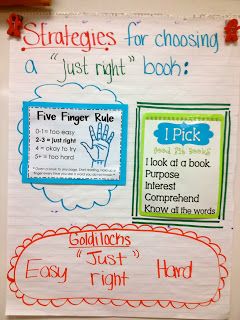 Strategies for choosing
a "just right" book:
Five Finger Rule
0-1= too easy
2-3 = just right
4 = okay to try
5+ = too hard
I Pick
Good Fit Books
I look at a book
Purpose
Interest
Comprehend
Know all the words
Goldilocks
Easy "Just right" Hard